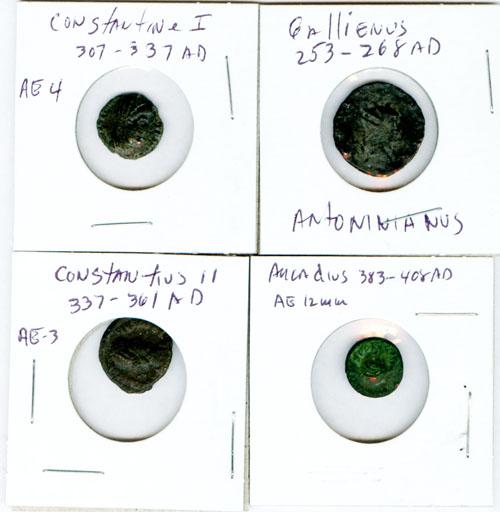 Constantine I
307-337 AD
AE 4
Gallienus
253-268 AD
Antoninianus
Constantius II
337-361 AD
AE-3
Arcadius 383-408 AD
AE 12mm